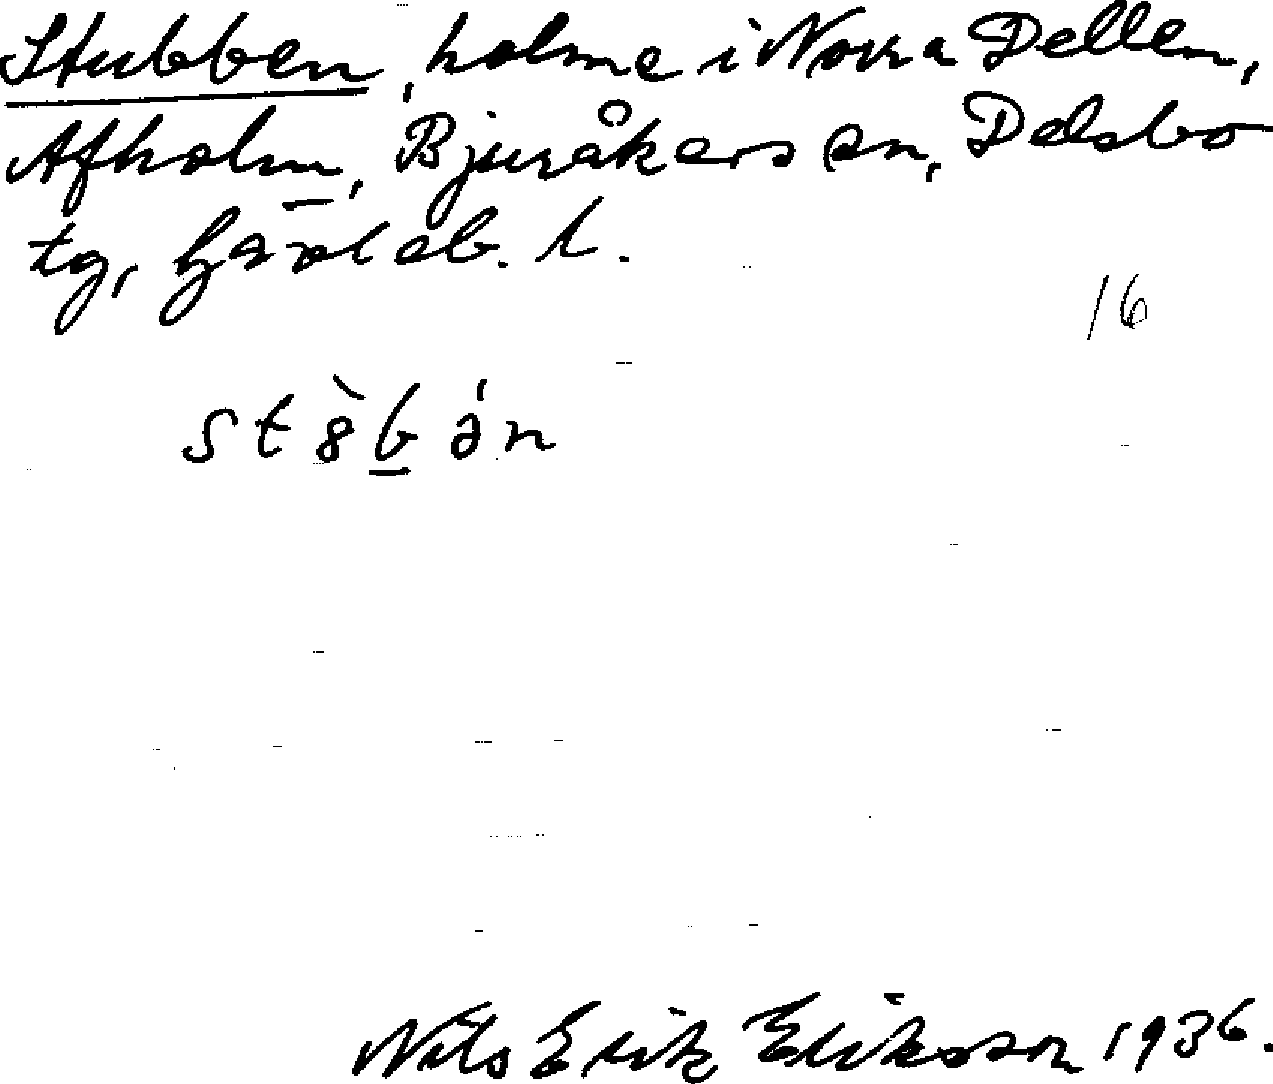 Stubben, holme i Norra Dellen,
Afholm, Bjuråkers sn, Delsbo
tg, Gävleb. l.
16
st8̀bə́n
Nils Erik Eriksson 1936.